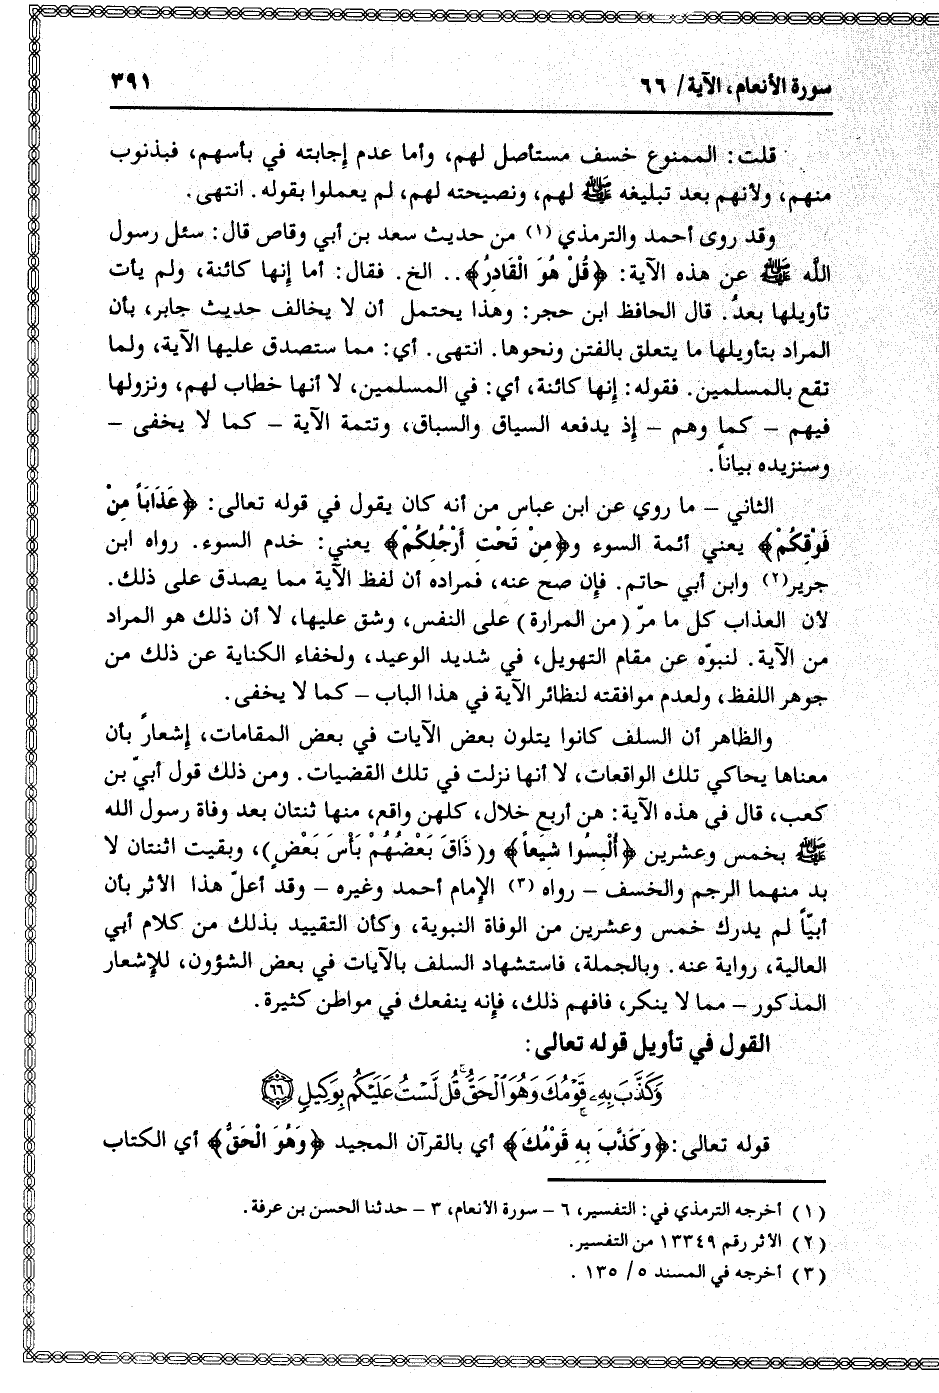 سورة الأنعام، الآية/ ٦٦
٣٩١
قلت: الممنوع خسف مستأصل لهم، وأما عدم إجابته في بأسهم، فبذنوب
منهم، ولأنهم بعد تبليغه ﷺ لهم، ونصيحته لهم، لم يعملوا بقوله. انتهى.
وقد روى أحمد والترمذي (١) من حديث سعد بن أبي وقاص قال: سئل رسول
الله ﷺ عن هذه الآية: ﴿قُلْ هُوَ الْقَادِرُ﴾.. الخ. فقال: أما إنها كائنة، ولم يأت
تأويلها بعدُ. قال الحافظ ابن حجر: وهذا يحتمل أن لا يخالف حديث جابر، بأن
المراد بتأويلها ما يتعلق بالفتن ونحوها. انتهى. أي: مما ستصدق عليها الآية، ولما
تقع بالمسلمين. فقوله: إنها كائنة، أي: في المسلمين، لا أنها خطاب لهم، ونزولها
فيهم – كما وهم – إذ يدفعه السياق والسباق، وتتمة الآية – كما لا يخفى –
وسنزيده بياناً.
الثاني – ما روي عن ابن عباس من أنه كان يقول في قوله تعالى: ﴿عَذَابَاً مِنْ
فَوْقِكُمْ﴾ يعني أئمة السوء و﴿مِنْ تَحْتِ أَرْجُلِكُمْ﴾ يعني: خدم السوء. رواه ابن
جرير(٢) وابن أبي حاتم. فإن صح عنه، فمراده أن لفظ الآية مما يصدق على ذلك.
لأن العذاب كل ما مرّ (من المرارة) على النفس، وشق عليها، لا أن ذلك هو المراد
من الآية. لنبوّه عن مقام التهويل، في شديد الوعيد، ولخفاء الكناية عن ذلك من
جوهر اللفظ، ولعدم موافقته لنظائر الآية في هذا الباب – كما لا يخفى.
والظاهر أن السلف كانوا يتلون بعض الآيات في بعض المقامات، إشعاراً بأن
معناها يحاكي تلك الواقعات، لا أنها نزلت في تلك القضيات. ومن ذلك قول أبيّ بن
كعب، قال في هذه الآية: هن أربع خلال، كلهن واقع، منها ثنتان بعد وفاة رسول الله
ﷺ بخمس وعشرين ﴿أُلْبِسُوا شِيَعاً﴾ و(ذَاقَ بَعْضُهُمْ بَأْسَ بَعْضٍ)، وبقيت اثنتان لا
بد منهما الرجم والخسف – رواه (٣) الإمام أحمد وغيره – وقد أعلّ هذا الأثر بأن
أبيّاً لم يدرك خمس وعشرين من الوفاة النبوية، وكأن التقييد بذلك من كلام أبي
العالية، رواية عنه. وبالجملة، فاستشهاد السلف بالآيات في بعض الشؤون، للإشعار
المذكور – مما لا ينكر، فافهم ذلك، فإنه ينفعك في مواطن كثيرة.
القول في تأويل قوله تعالى:
وَكَذَّبَ بِهِۦ قَوْمُكَ وَهُوَ ٱلْحَقُّ ۚ قُل لَّسْتُ عَلَيْكُم بِوَكِيلٍ ۝٦٦
قوله تعالى: ﴿وَكَذَّبَ بِهِ قَوْمُكَ﴾ أي بالقرآن المجيد ﴿وَهُوَ الْحَقُّ﴾ أي الكتاب
(١) أخرجه الترمذي في: التفسير، ٦ – سورة الأنعام، ٣ – حدثنا الحسن بن عرفة.
(٢) الأثر رقم ١٣٣٤٩ من التفسير.
(٣) أخرجه في المسند ٥/ ١٣٥ .